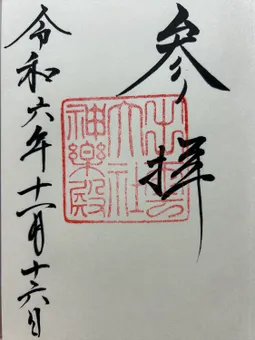 参拝
出雲
大社
神楽殿
令和六年十一月十六日